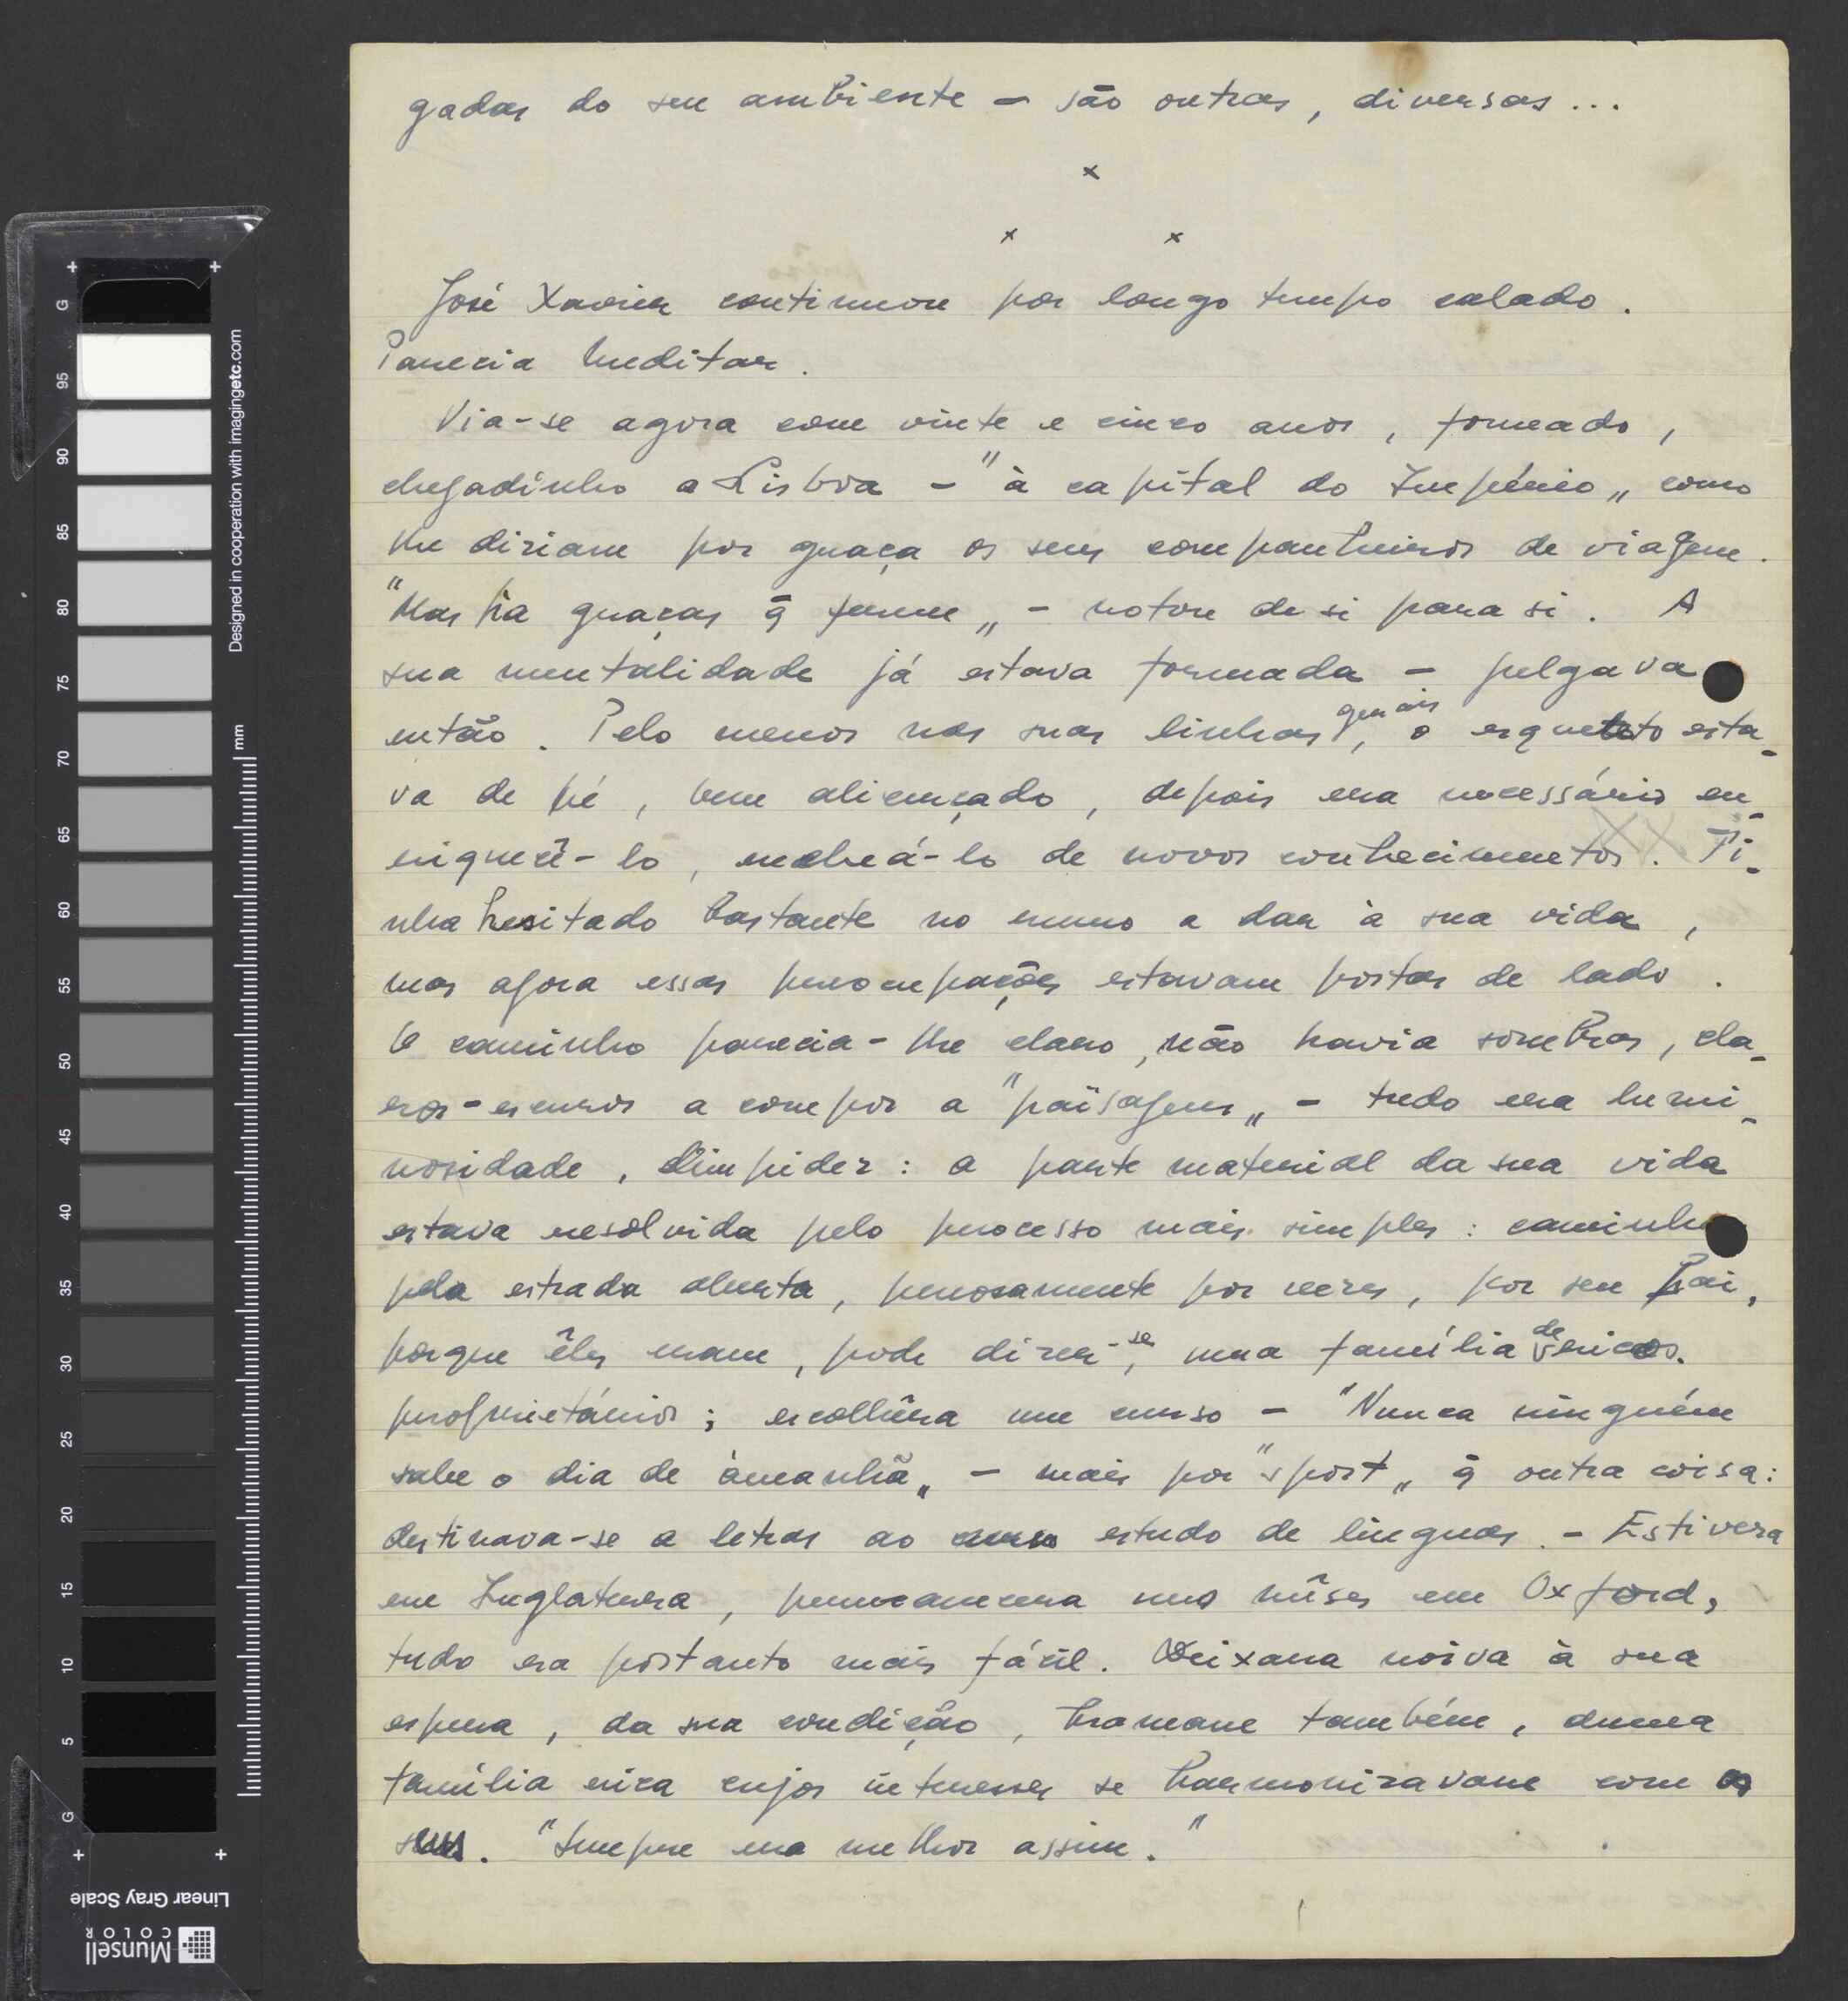 gadas do seu ambiente — são outras, diversas...
x
x x
José Xavier continuou por longo tempo calado.
Parecia meditar.
Via-se agora com vinte e cinco anos, formado,
chegadinho a Lisboa — "à capital do Império„ como
lhe diziam por graça os seus companheiros de viagem.
"Mas há graças q̃ ferem„ — notou de si para si. A
sua mentalidade já estava formada — julgava
então. Pelo menos nas suas linhas gerais, o esqueleto esta-
va de pé, bem alicerçado, depois era necessário en-
riquecê-lo, recheá-lo de novos conhecimentos. Ti-
nha hesitado bastante no rumo a dar à sua vida,
mas agora essas preocupações estavam postas de lado.
O caminho parecia-lhe claro, não havia sombras, cla-
ros-escuros a compor a "païsagem„ — tudo era lumi-
nosidade, limpidez: a parte material da sua vida
estava resolvida pelo processo mais simples: caminho
pela estrada aberta, penosamente por vezes, por seu Pai,
porque êles eram, pode dizer-se, uma família de ricos
proprietários; escolhêra um curso — "Nunca ninguém
sabe o dia de àmanhã„ — mais por "sport„ q̃ outra coisa:
destinava-se a letras ao estudo de linguas. — Estivera
em Inglaterra, permanecera uns mêses em Oxford,
tudo era portanto mais fácil. Deixara noiva à sua
espera, da sua condição, tramane também, duma
família rica cujos interesses se harmonizavam com os
seus. "Sempre era melhor assim."
Designed in cooperation with imagingetc.com
mm
G 95 90 85 80 75 70 65 60 55 50 45 40 35 30 25 20 15 10 5 G
Linear Gray Scale
Munsell
COLOR